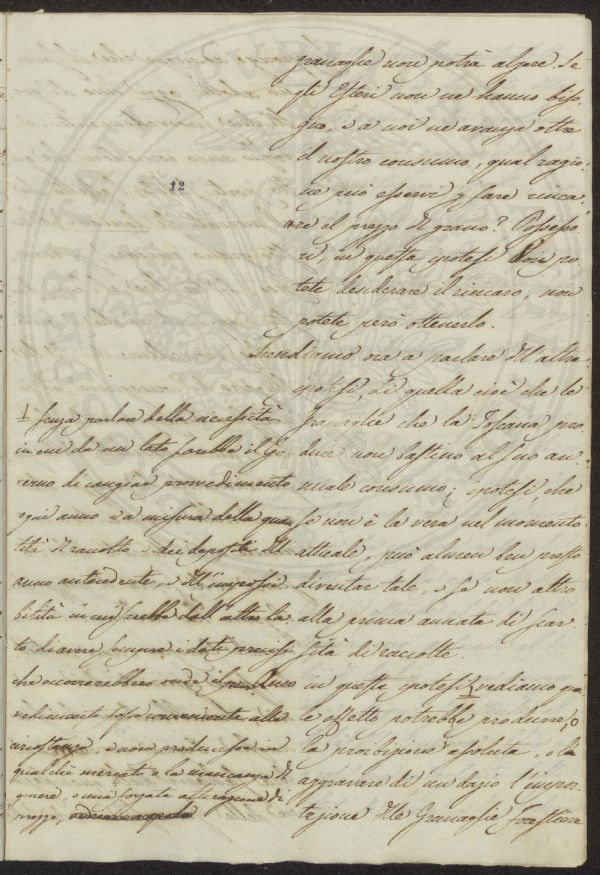 12
granaglie non potrà alzare. Se
gli Esteri non ne hanno biso
gno, e a noi ne avanza oltre
il nostro consumo, qual ragio
ne può esservi p fare rinca
re il prezzo di grano? Possesso
ri, in questa ipotesi
tete desiderare il rincaro, non
potete però ottenerlo.
Prendiamo ora a parlare dell'altra
ipotesi, di quella cioè che le
granaglie che la Toscana pro
duce non bastino al suo an
nuale consumo; ipotesi, che
se non è la vera nel momento
attuale, può almeno ben presto
diventar tale, e se non altro
alla prima annata di scar
sità di raccolte.
in questa ipotesi vediamo qua
le effetto potrebbe produrre, o
la proibizione assoluta, o l'
aggravare di un dazio l'impor
tazione delle Granaglie Forestiere
senza parlare della necessità
in cui da un lato sarebbe il Go
verno di cangiar provvedimento
ogni anno e a misura della quan
tità di raccolto e dei depositi dell'
anno antecedente, e dell'impossi
bilità in cui sarebbe dall'altro la
to di avere sempre i dati precisi
che occorrerebbero onde il
vedimento fosse conveniente alle
circostanze, e non producesse in
qualche mercato o la mancanza di
genere, o una forzata alterazione di
prezzo,